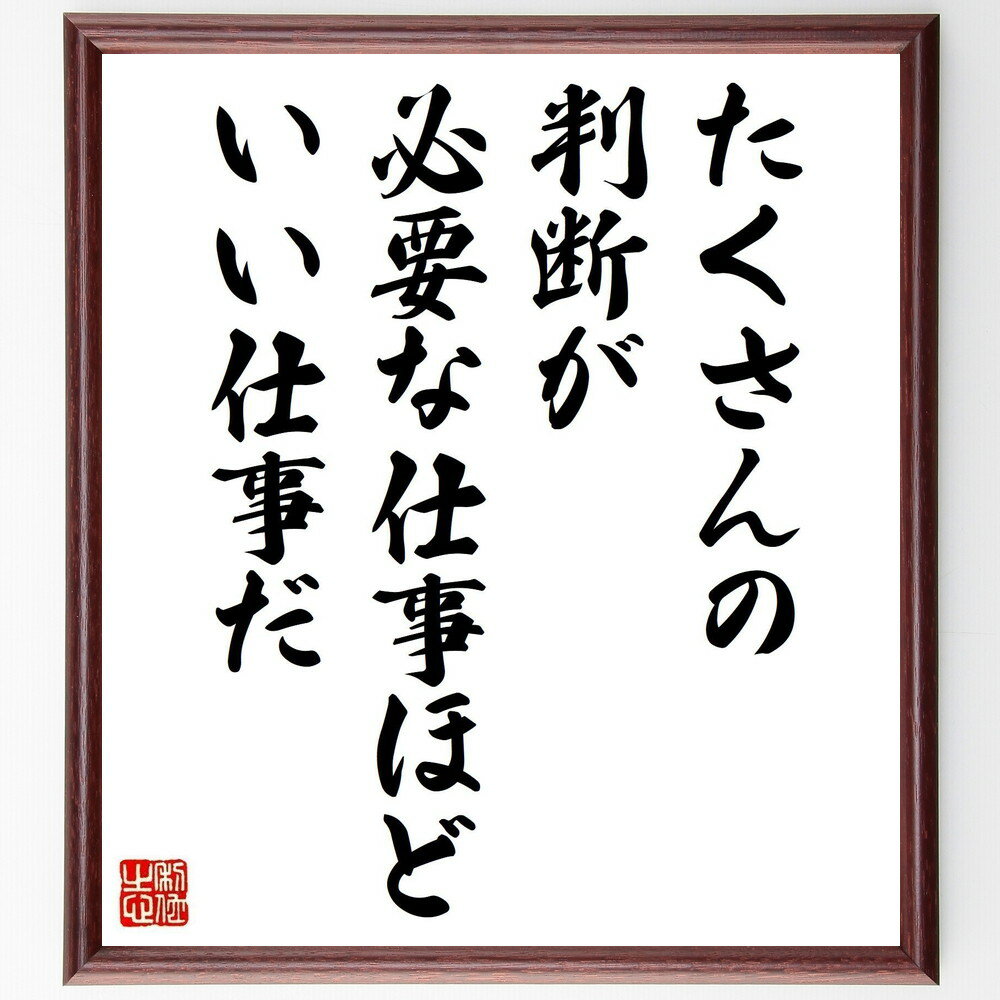 たくさんの
判断が
必要な仕事ほど
いい仕事だ